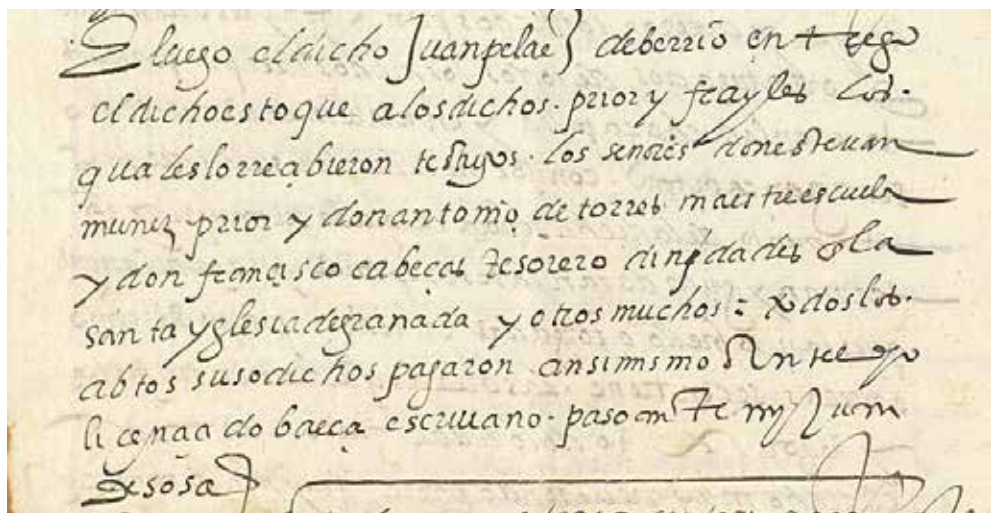 E luego el dicho Juan pelaez de berrio entrego
el dicho estoque a los dichos. prior y frayles los.
quales lo rreçibieron testigos. los señores don estevan
muñez prior y don antonio de torres maestrescuela
y don françisco cabeças tesorero dinydades de la
santa yglesia de granada y otros muchos: todos los.
abtos susodichos pasaron ansimismo ante el
liçençiado baeça escriuano. paso ante my Juan
de sosa